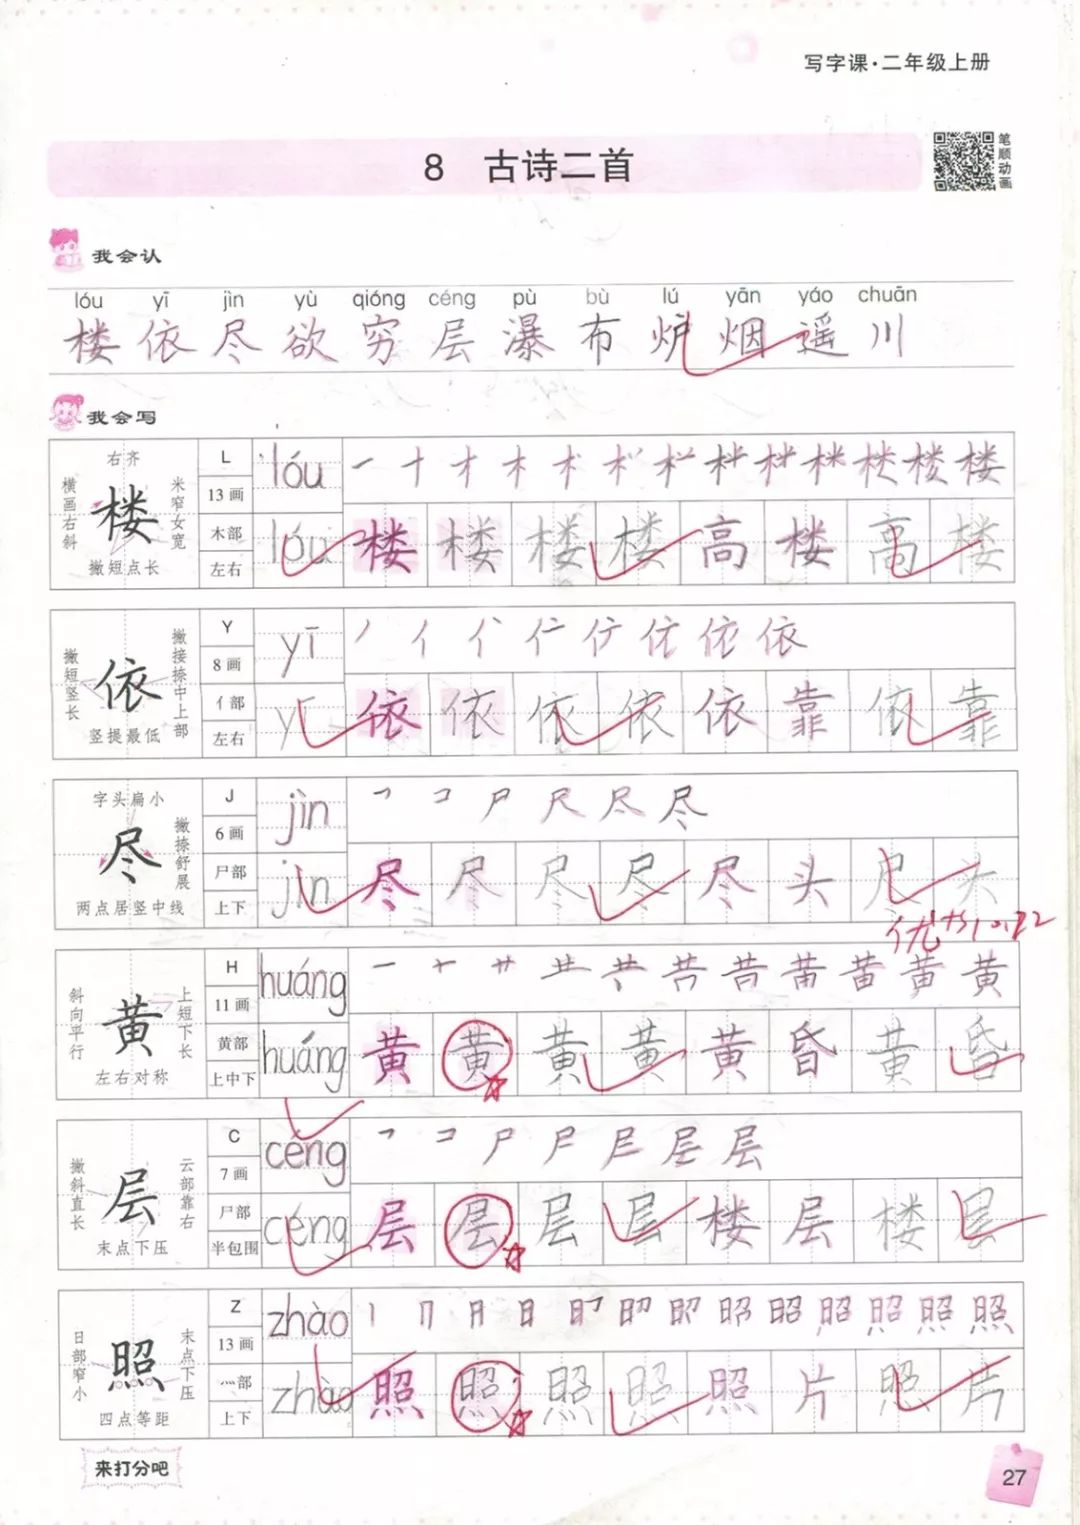 写字课·二年级上册
8 古诗二首
笔顺动画
我会认
lóu yī jìn yù qióng céng pù bù lú yān yáo chuān
楼 依 尽 欲 穷 层 瀑 布 炉 烟 遥 川
我会写
右齐
横画右斜
楼
米窄女宽
撇短点长
L
13画
木部
左右
lóu
lóu
楼 楼 楼 楼 高 楼 高 楼
撇短竖长
依
撇接捺中上部
竖提最低
Y
8画
亻部
左右
yī
yī
依 依 依 依 依 靠 依 靠
字头扁小
尽
撇捺舒展
两点居竖中线
J
6画
尸部
上下
jìn
jìn
尽 尽 尽 尽 尽 头 尽 头
优
斜向平行
黄
上短下长
左右对称
H
11画
黄部
上中下
huáng
huáng
黄 黄 黄 黄 黄 昏 黄 昏
撇斜直长
层
云部靠右
末点下压
C
7画
尸部
半包围
céng
céng
层 层 层 层 楼 层 楼 层
日部窄小
照
末点下压
四点等距
Z
13画
灬部
上下
zhào
zhào
照 照 照 照 照 片 照 片
来打分吧
27